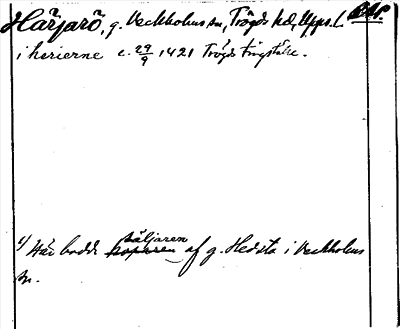 Härjarö, g. Veckholms sn, Trögds hd, Upps. l.
i herierne c. 29/9 1421 Trögds tingställe.
1) Här bodde köparen säljaren af g. Hedsta i Veckholms
sn.